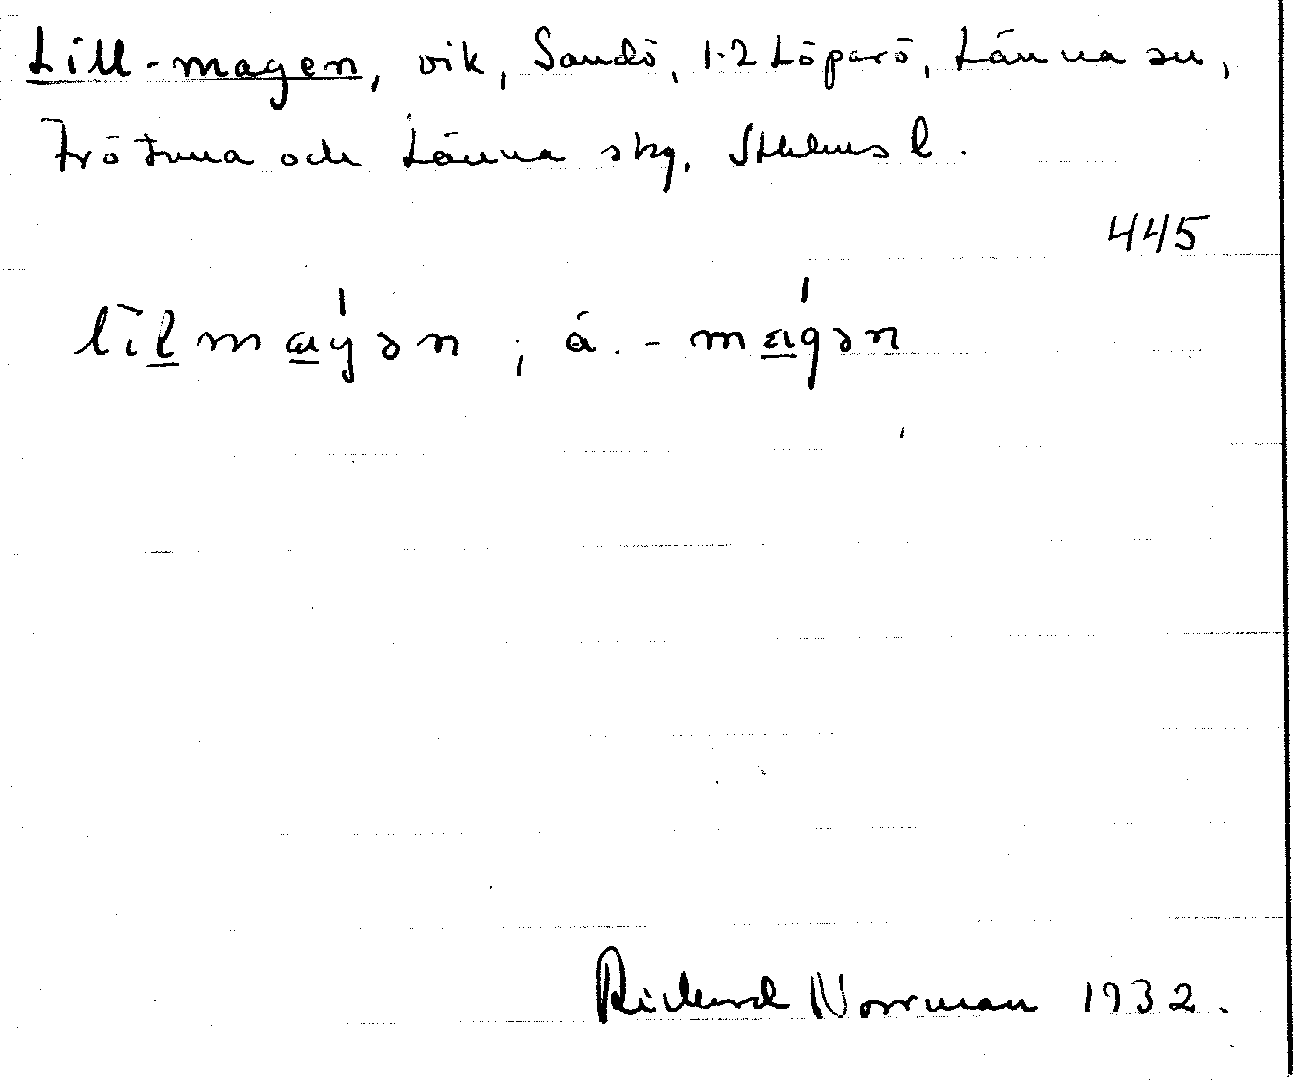 Lill-magen, vik, Sandö, 1-2 Löparö, Länna sn,
Frötuna och Länna skg, Sthlms l.
445
lìlmaγən ; ä. -magən
Rickard Norrman 1932.